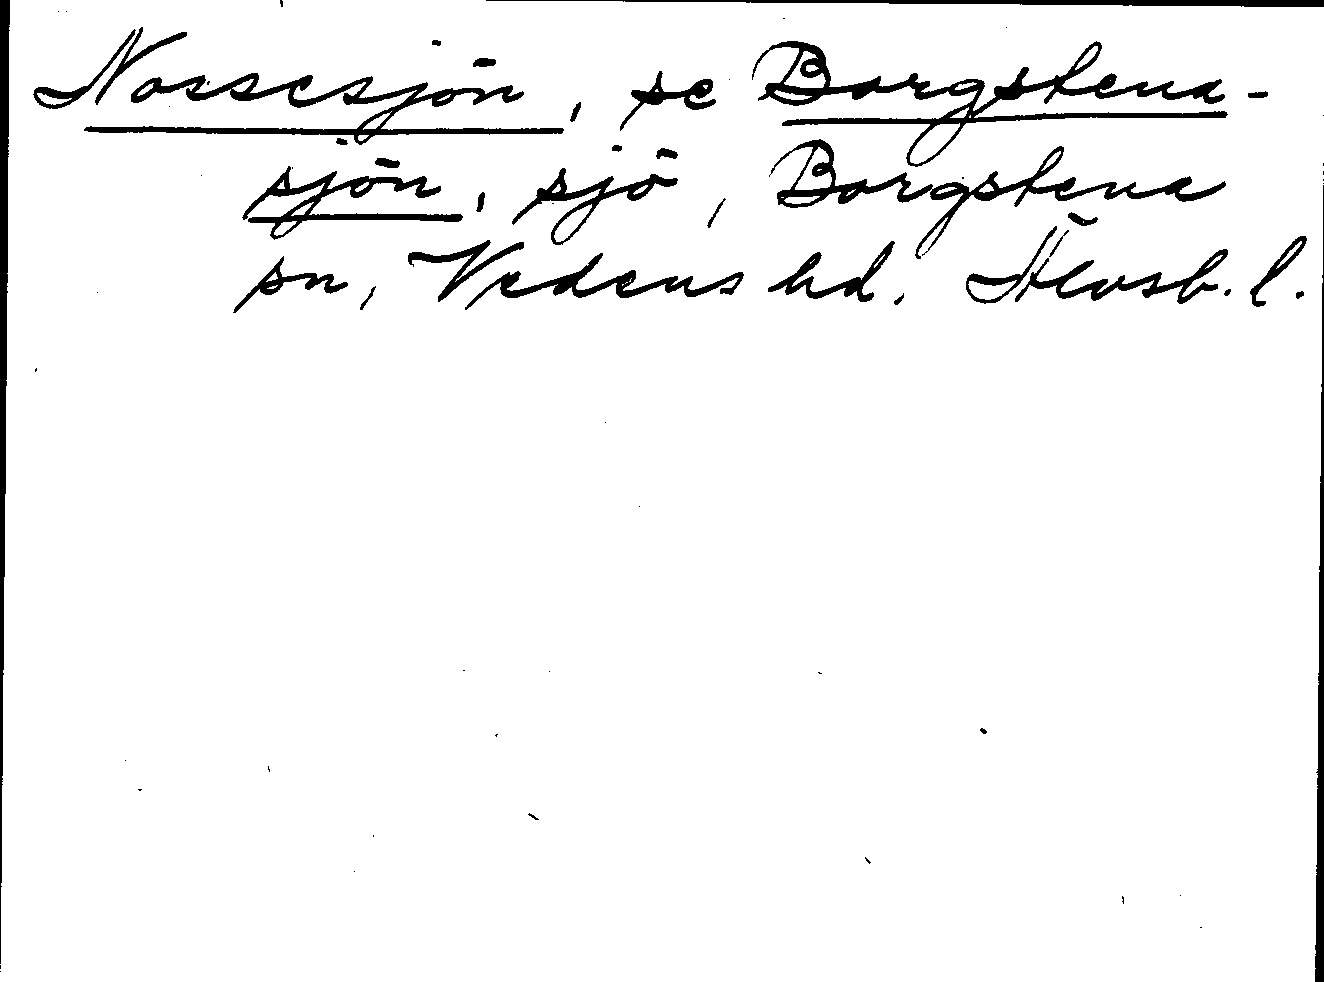 Nossesjön, se Borgstena-
sjön, sjö, Borgstena
sn, Vedens hd. Älvsb. l.